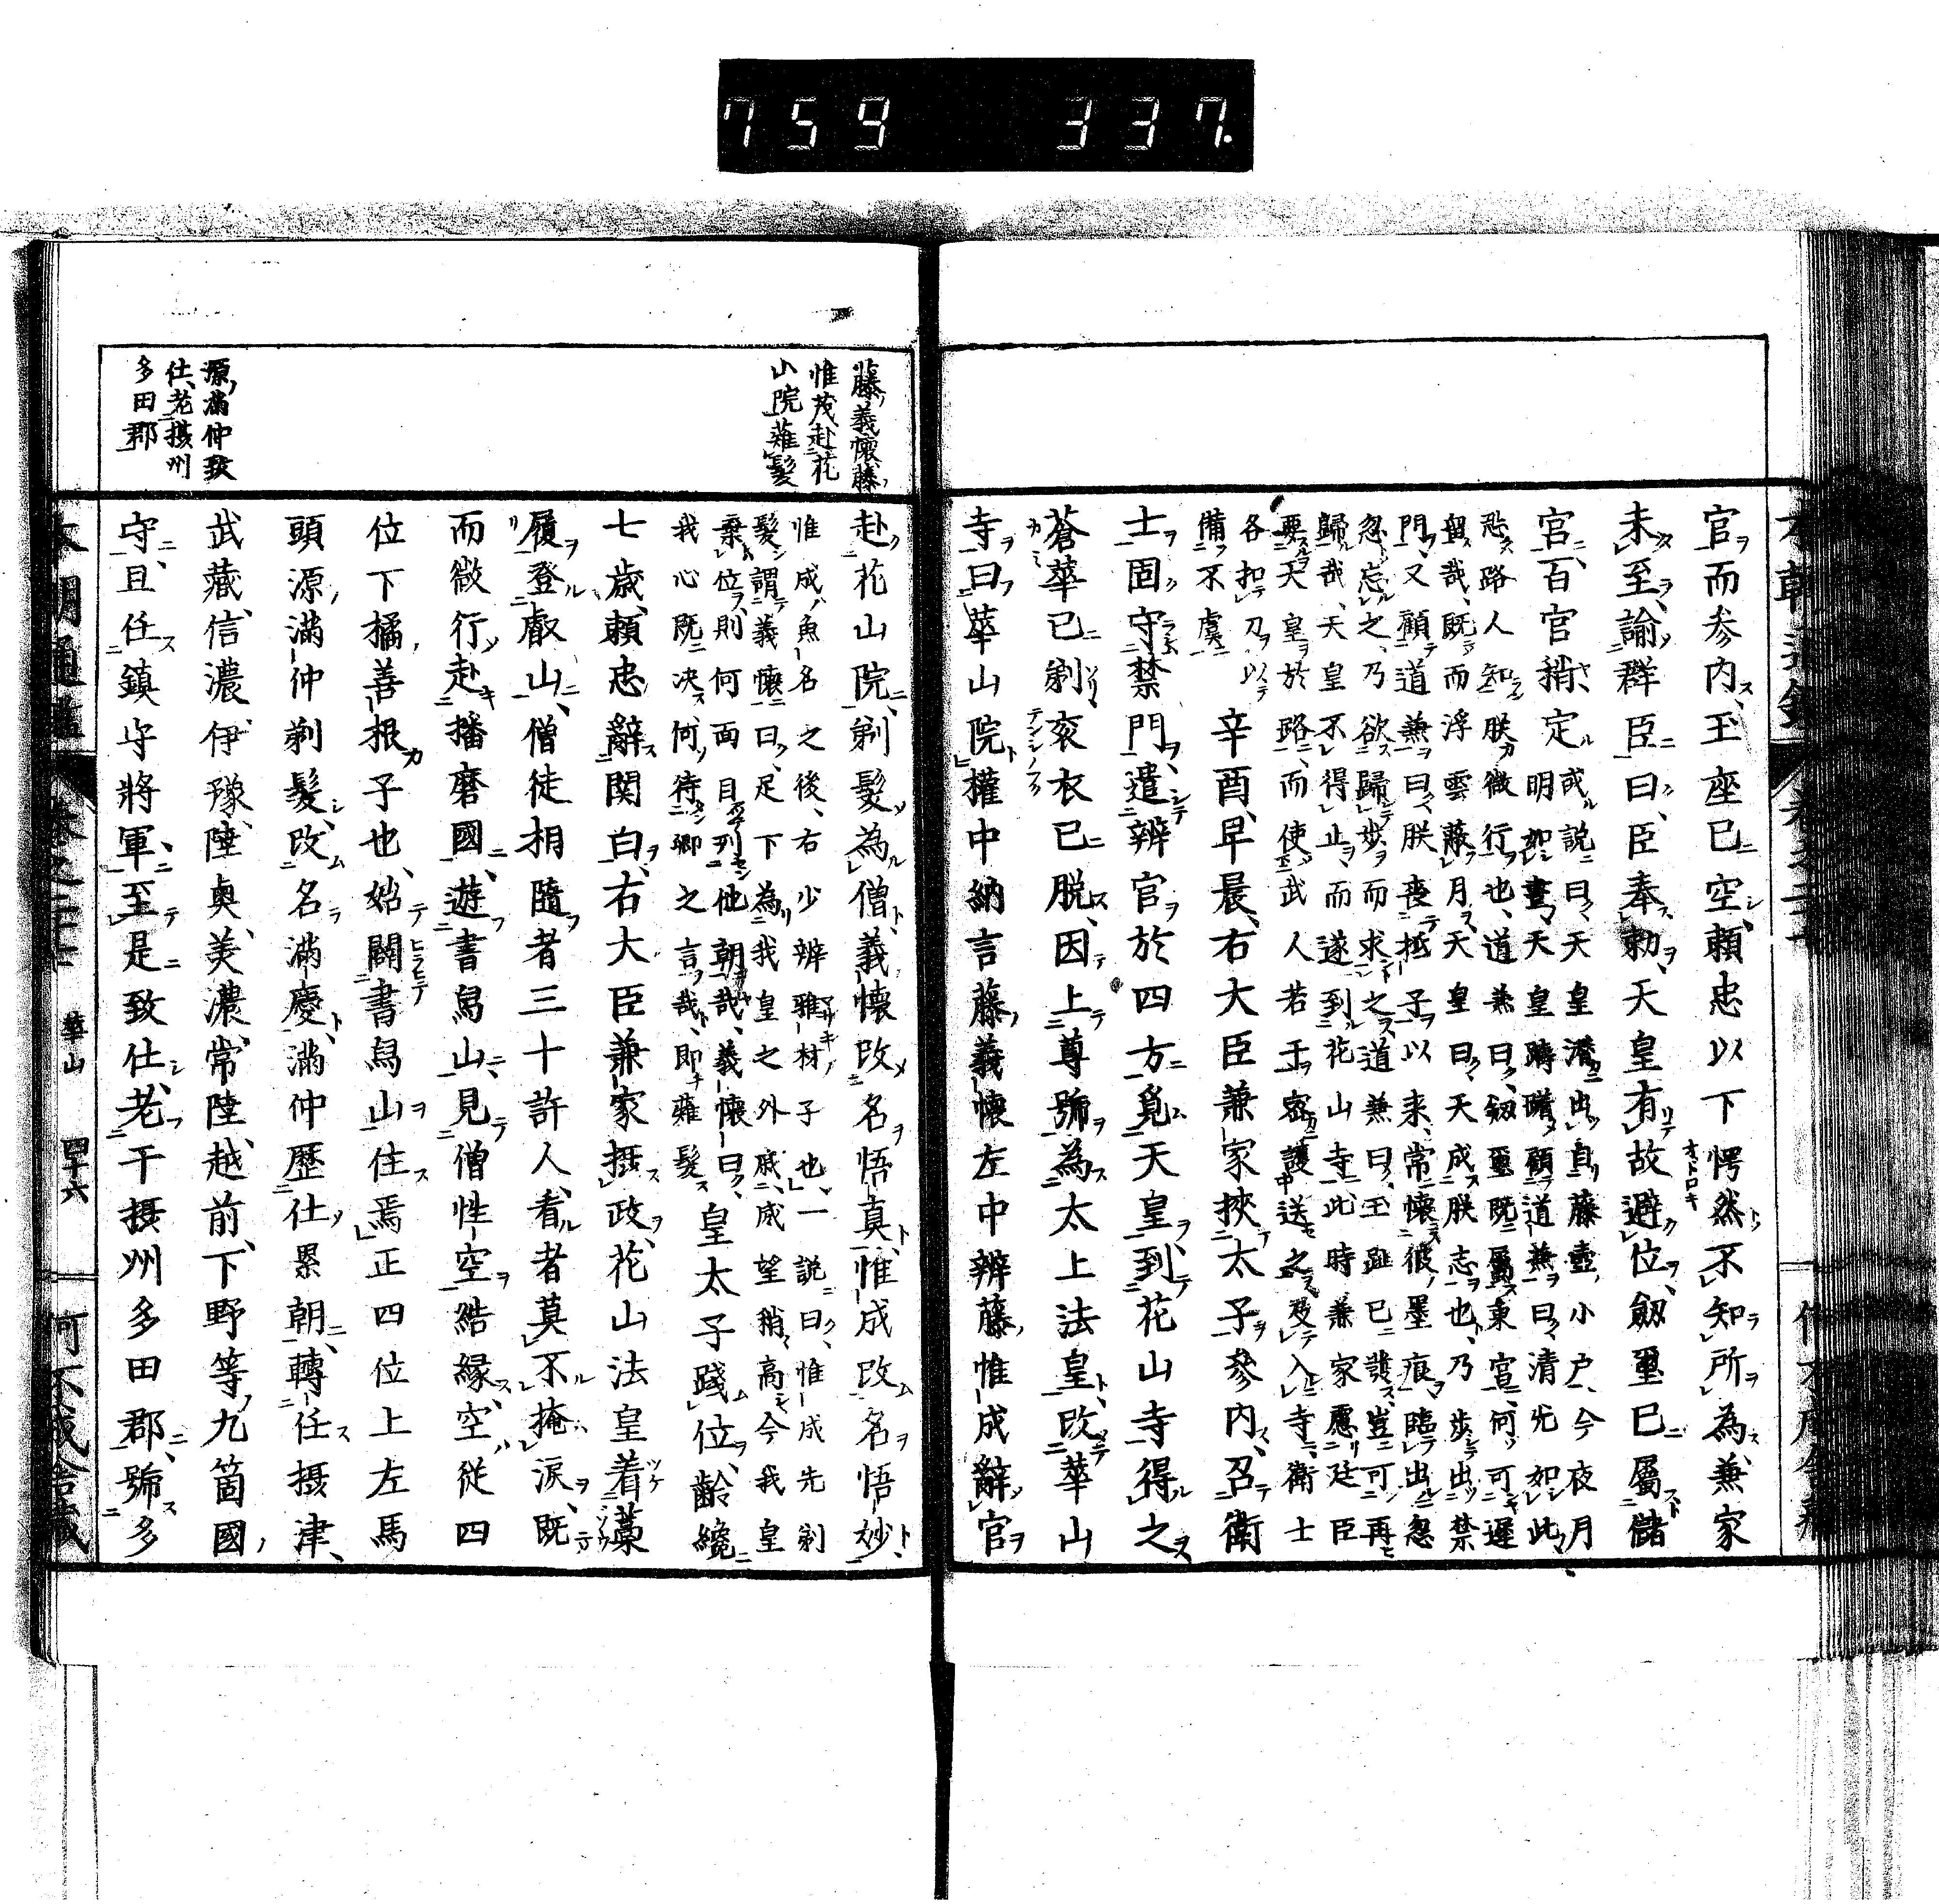 759 337.
官而参内王座已空頼忠以下愕然不知所為兼家
未至諭群臣曰臣奉勅天皇有故避位劔璽已屬儲
官百官稍定
或説曰天皇潜出自藤壺小戸今夜月
明如晝天皇躊躇顧道兼曰清光如此
恐路人知朕微行也道兼曰劔璽既屬東宣何可遅
留哉既而浮雲蔽月天皇曰天成朕志也乃歩出禁
門又顧道兼曰朕喪柢子以来常懐彼墨痕臨出忽
忽忘之乃欲歸歩而求之道兼曰玉趾已發豈可再
歸哉天皇不得止而遂到花山寺此時兼家慮廷臣
要天皇於路而使武人若干密護送之及入寺衛士
各扣刀以
備不虞
辛酉早晨右大臣兼家挾太子参内召衛
士固守禁門遣辨官於四方覓天皇到花山寺得之
蒼華已剃衮衣已脱因上尊號為太上法皇改華山
寺曰華山院權中納言藤義懐左中辨藤惟成辭官
藤義懐藤
惟茂赴花
山院薙髮
赴花山院剃髮為僧義懐改名悟真惟成改名悟妙
惟成魚名之後右少辨雅材子也一説曰惟成先剃
髮謂義懐曰足下為我皇之外戚威望稍高今我皇
棄位則何面目列他朝哉義懐曰
我心既决何待卿之言哉即薙髮
皇太子踐位齡纔
七歳頼忠辭関白右大臣兼家摂政花山法皇着藁
履登叡山僧徒相隨者三十許人看者莫不掩涙既
而微行赴播磨國遊書舄山見僧性空結縁空從四
位下橘善根子也始闢書舄山住焉正四位上左馬
頭源満仲剃髮改名満慶満仲歴仕累朝轉任摂津
武藏信濃伊豫陸奥美濃常陸越前下野等九箇國
守且任鎮守將軍至是致仕老于摂州多田郡號多
源満仲致
仕老摂州
多田郡
華山
四十六